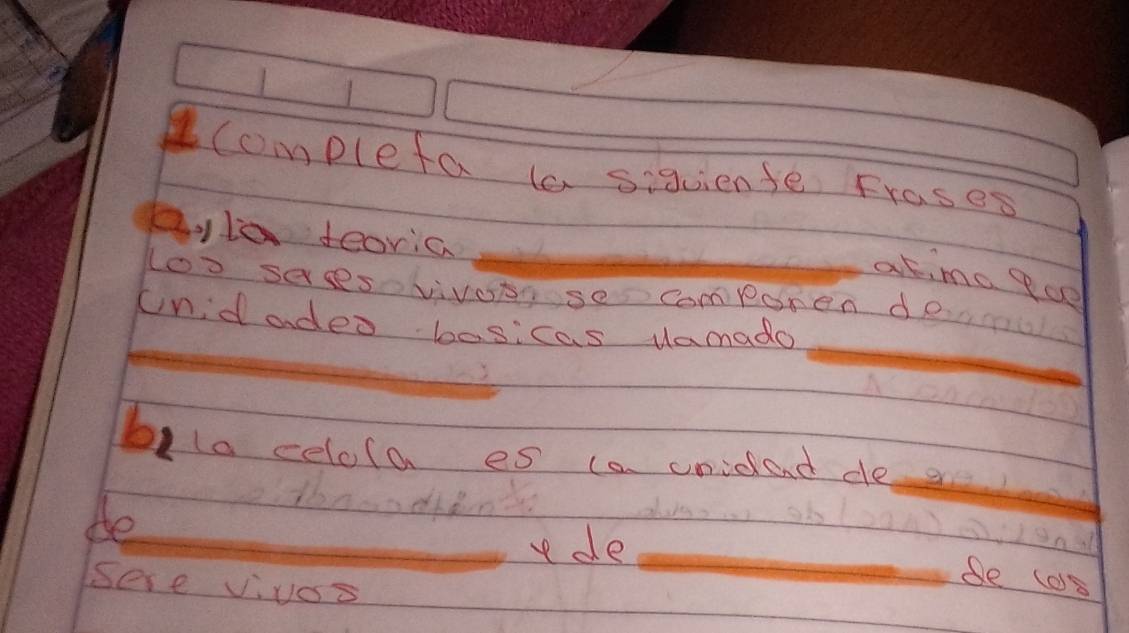 1 completa la siguiente Frases
a, la teoria ____ afima que
los seres vivos se componen de
Unidades basicas llamado ____
____
b, la celola es la unidad de ____
de ____ y de ____ de los
Sere vivos